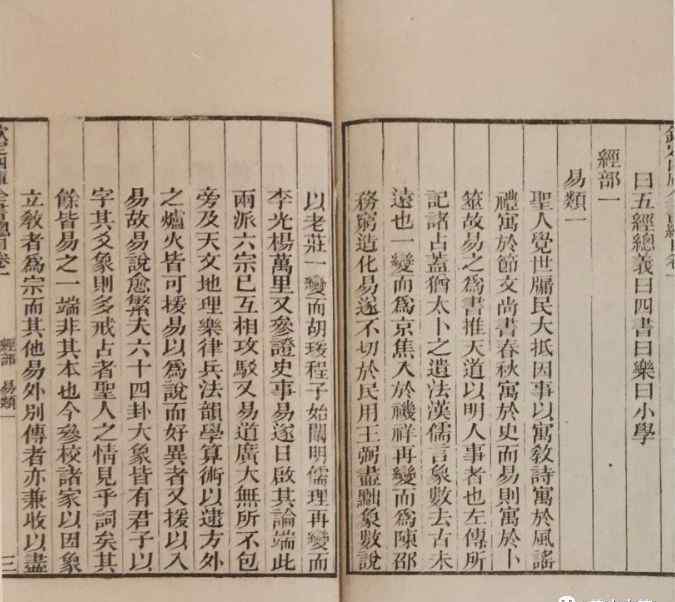 曰五經總義曰四書曰樂曰小學
經部一
易類一
聖人覺世牖民大抵因事以寓教詩寓於風謠
禮寓於節文尚書春秋寓於史而易則寓於卜
筮故易之為書推天道以明人事者也左傳所
記諸占蓋猶太卜之遺法漢儒言象數去古未
遠也一變而為京焦入於禨祥再變而為陳邵
務窮造化易遂不切於民用王弼盡黜象數說
以老莊一變而胡瑗程子始闡明儒理再變而
李光楊萬里又參證史事易遂日啟其論端此
兩派六宗已互相攻駁又易道廣大無所不包
旁及天文地理樂律兵法韻學算術以逮方外
之爐火皆可援易以為說而好異者又援以入
易故易說愈繁夫六十四卦大象皆有君子以
字其爻象則多戒占者聖人之情見乎詞矣其
餘皆易之一端非其本也今參校諸家以因象
立教者為宗而其他易外別傳者亦兼收以盡
經部 易類一
三